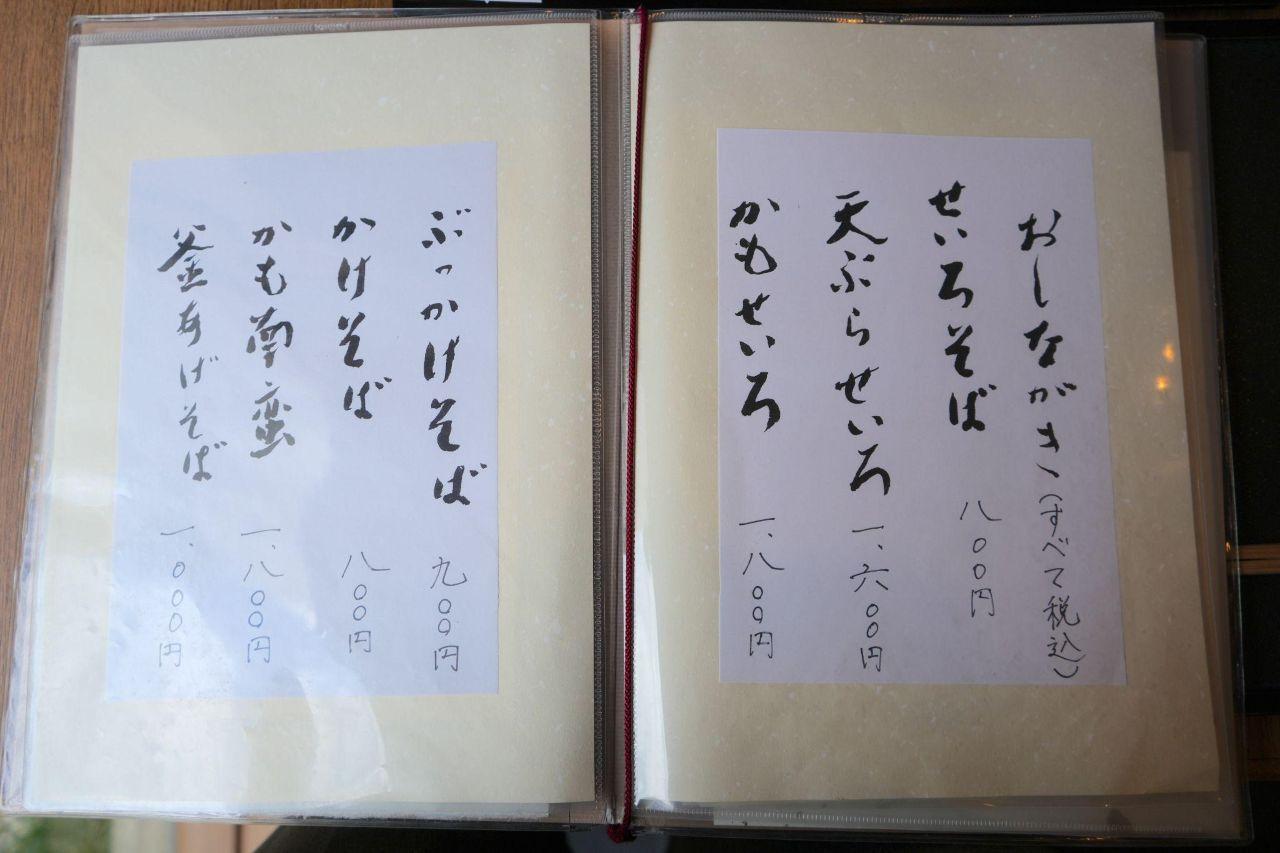 おしながき（すべて税込）
せいろそば 八〇〇円
天ぷらせいろ 一、六〇〇円
かもせいろ 一、八〇〇円
ぶっかけそば 九〇〇円
かけそば 八〇〇円
かも南蛮 一、八〇〇円
釜あげそば 一、〇〇〇円